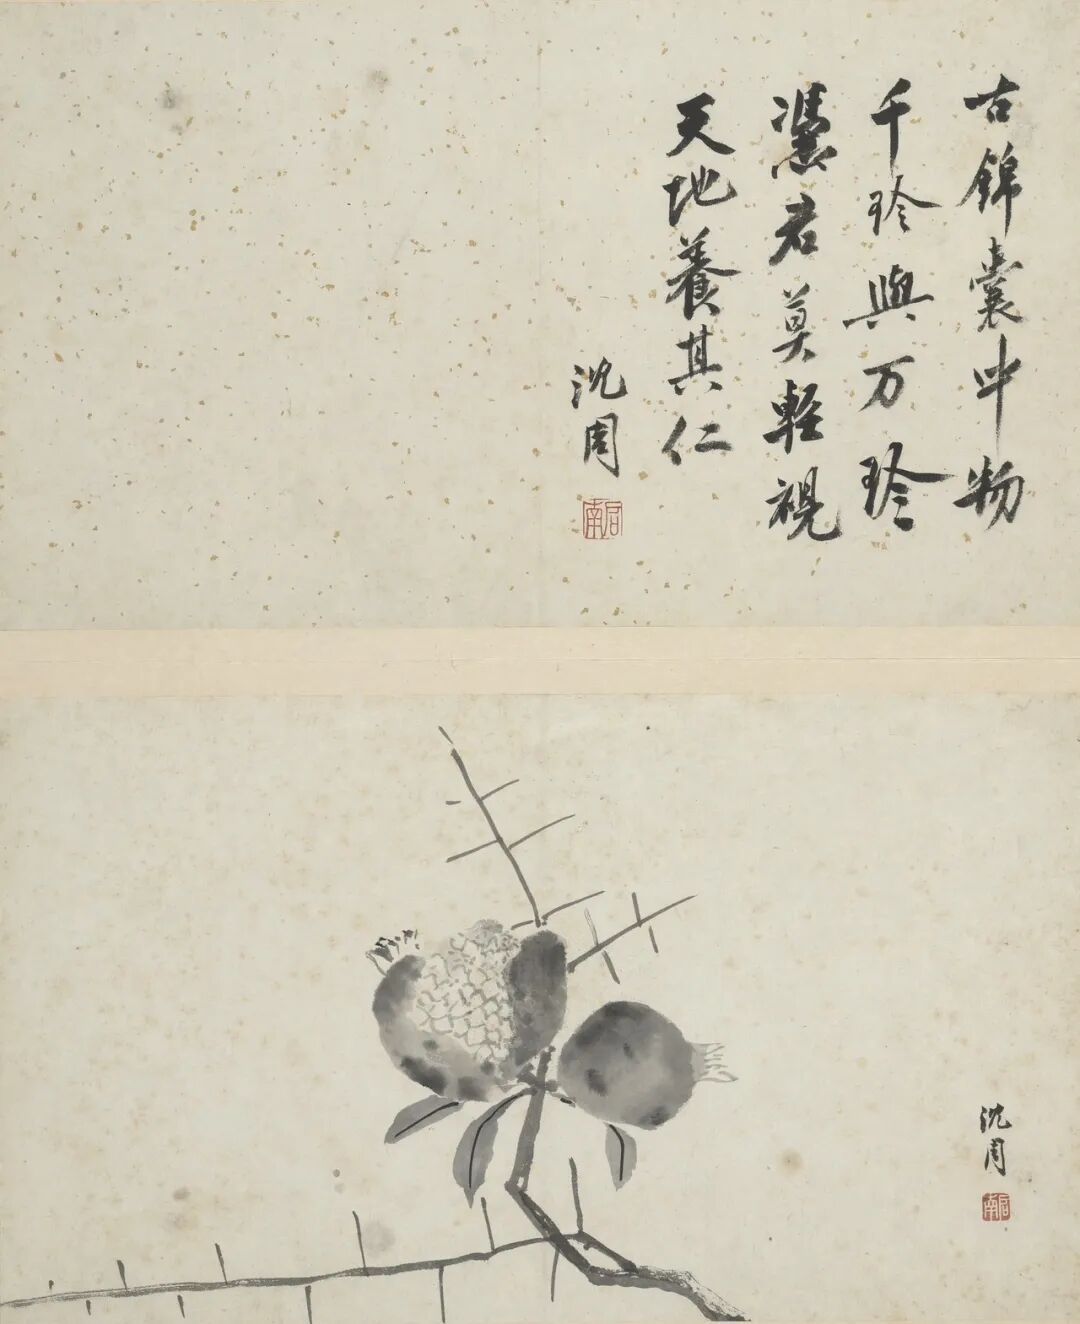 古錦囊中物
千珍與万珍
凴君莫輕視
天地養其仁
沈周
啟南
沈周
啟南